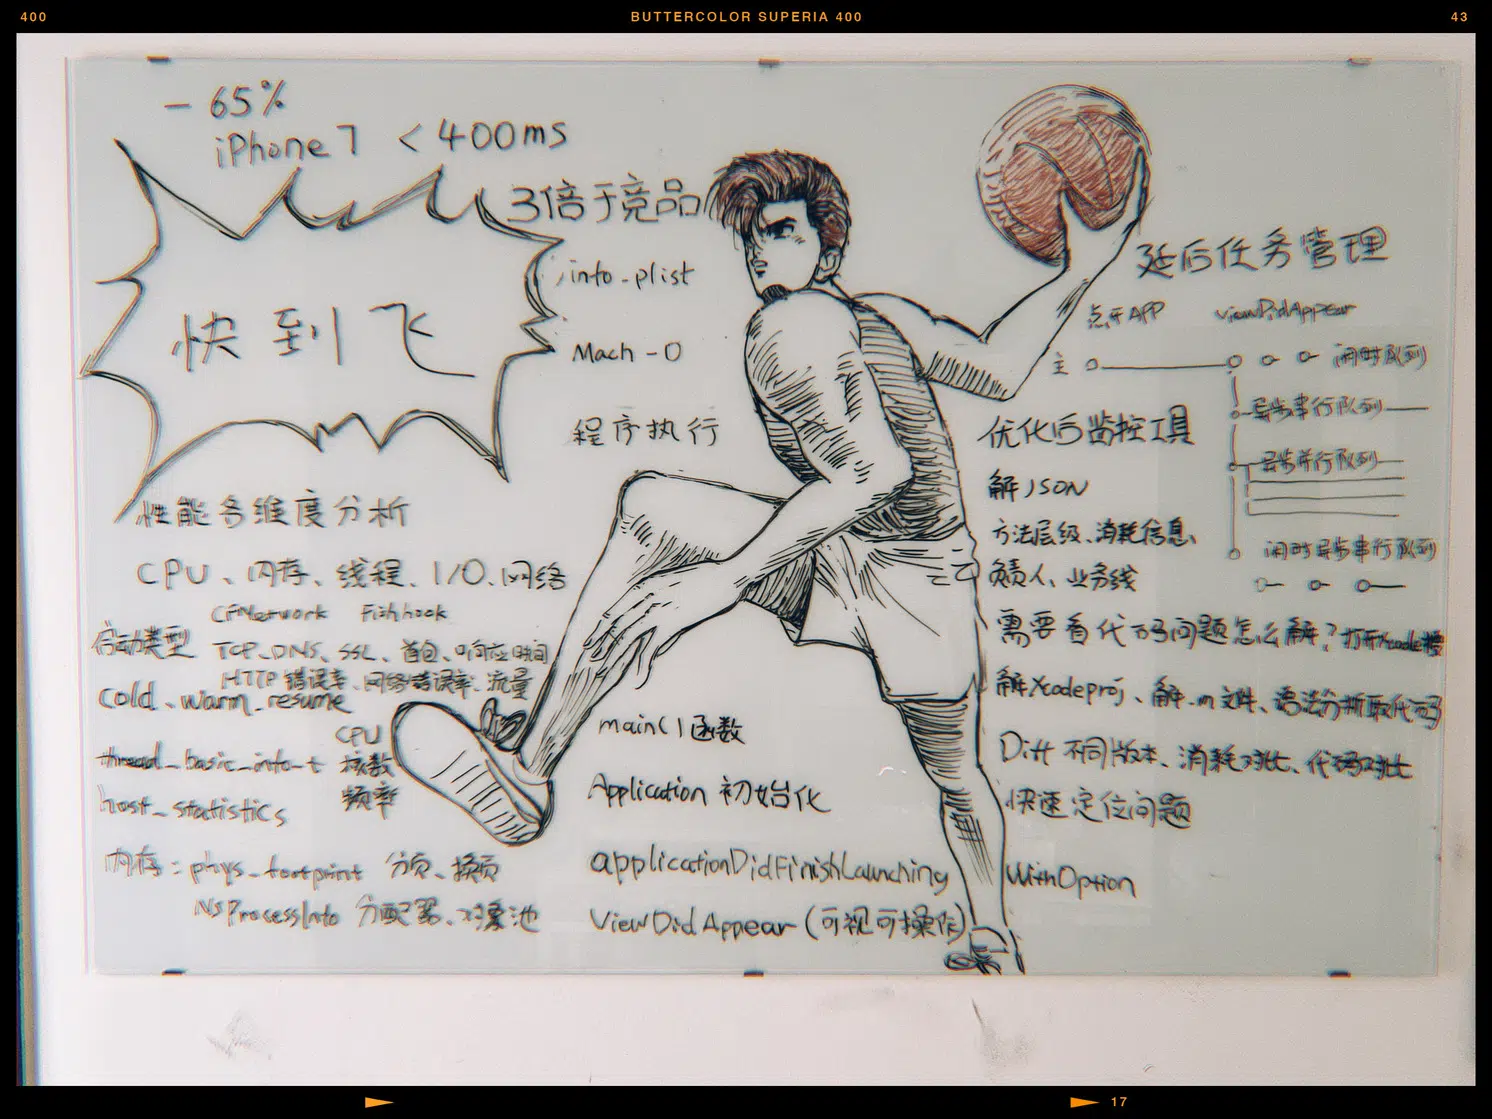 400
BUTTERCOLOR SUPERIA 400
43
- 65%
iPhone 7 < 400ms
3倍于竞品
快到飞
info.plist
Mach-O
程序执行
性能多维度分析
CPU、内存、线程、I/O、网络
CFNetwork Fishhook
启动类型 TCP、DNS、SSL、首包、响应时间
HTTP错误率、网络错误率、流量
cold、warm、resume
CPU
thread_basic_info_t 核数
host_statistics 频率
内存：phys_footprint 分页、换页
NSProcessInfo 分配器、对象池
main()函数
Application 初始化
applicationDidFinishLaunching WithOption
ViewDidAppear (可视可操作)
延后任务管理
点开APP viewDidAppear
主 闲时队列
异步串行队列
异步并行队列
闲时异步串行队列
优化后监控工具
解JSON
方法层级、消耗信息、
负责人、业务线
需要看代码问题怎么解？打开Xcode搜
解Xcodeproj、解.m文件、语法分析取代码
Diff 不同版本、消耗对比、代码对比
快速定位问题
17